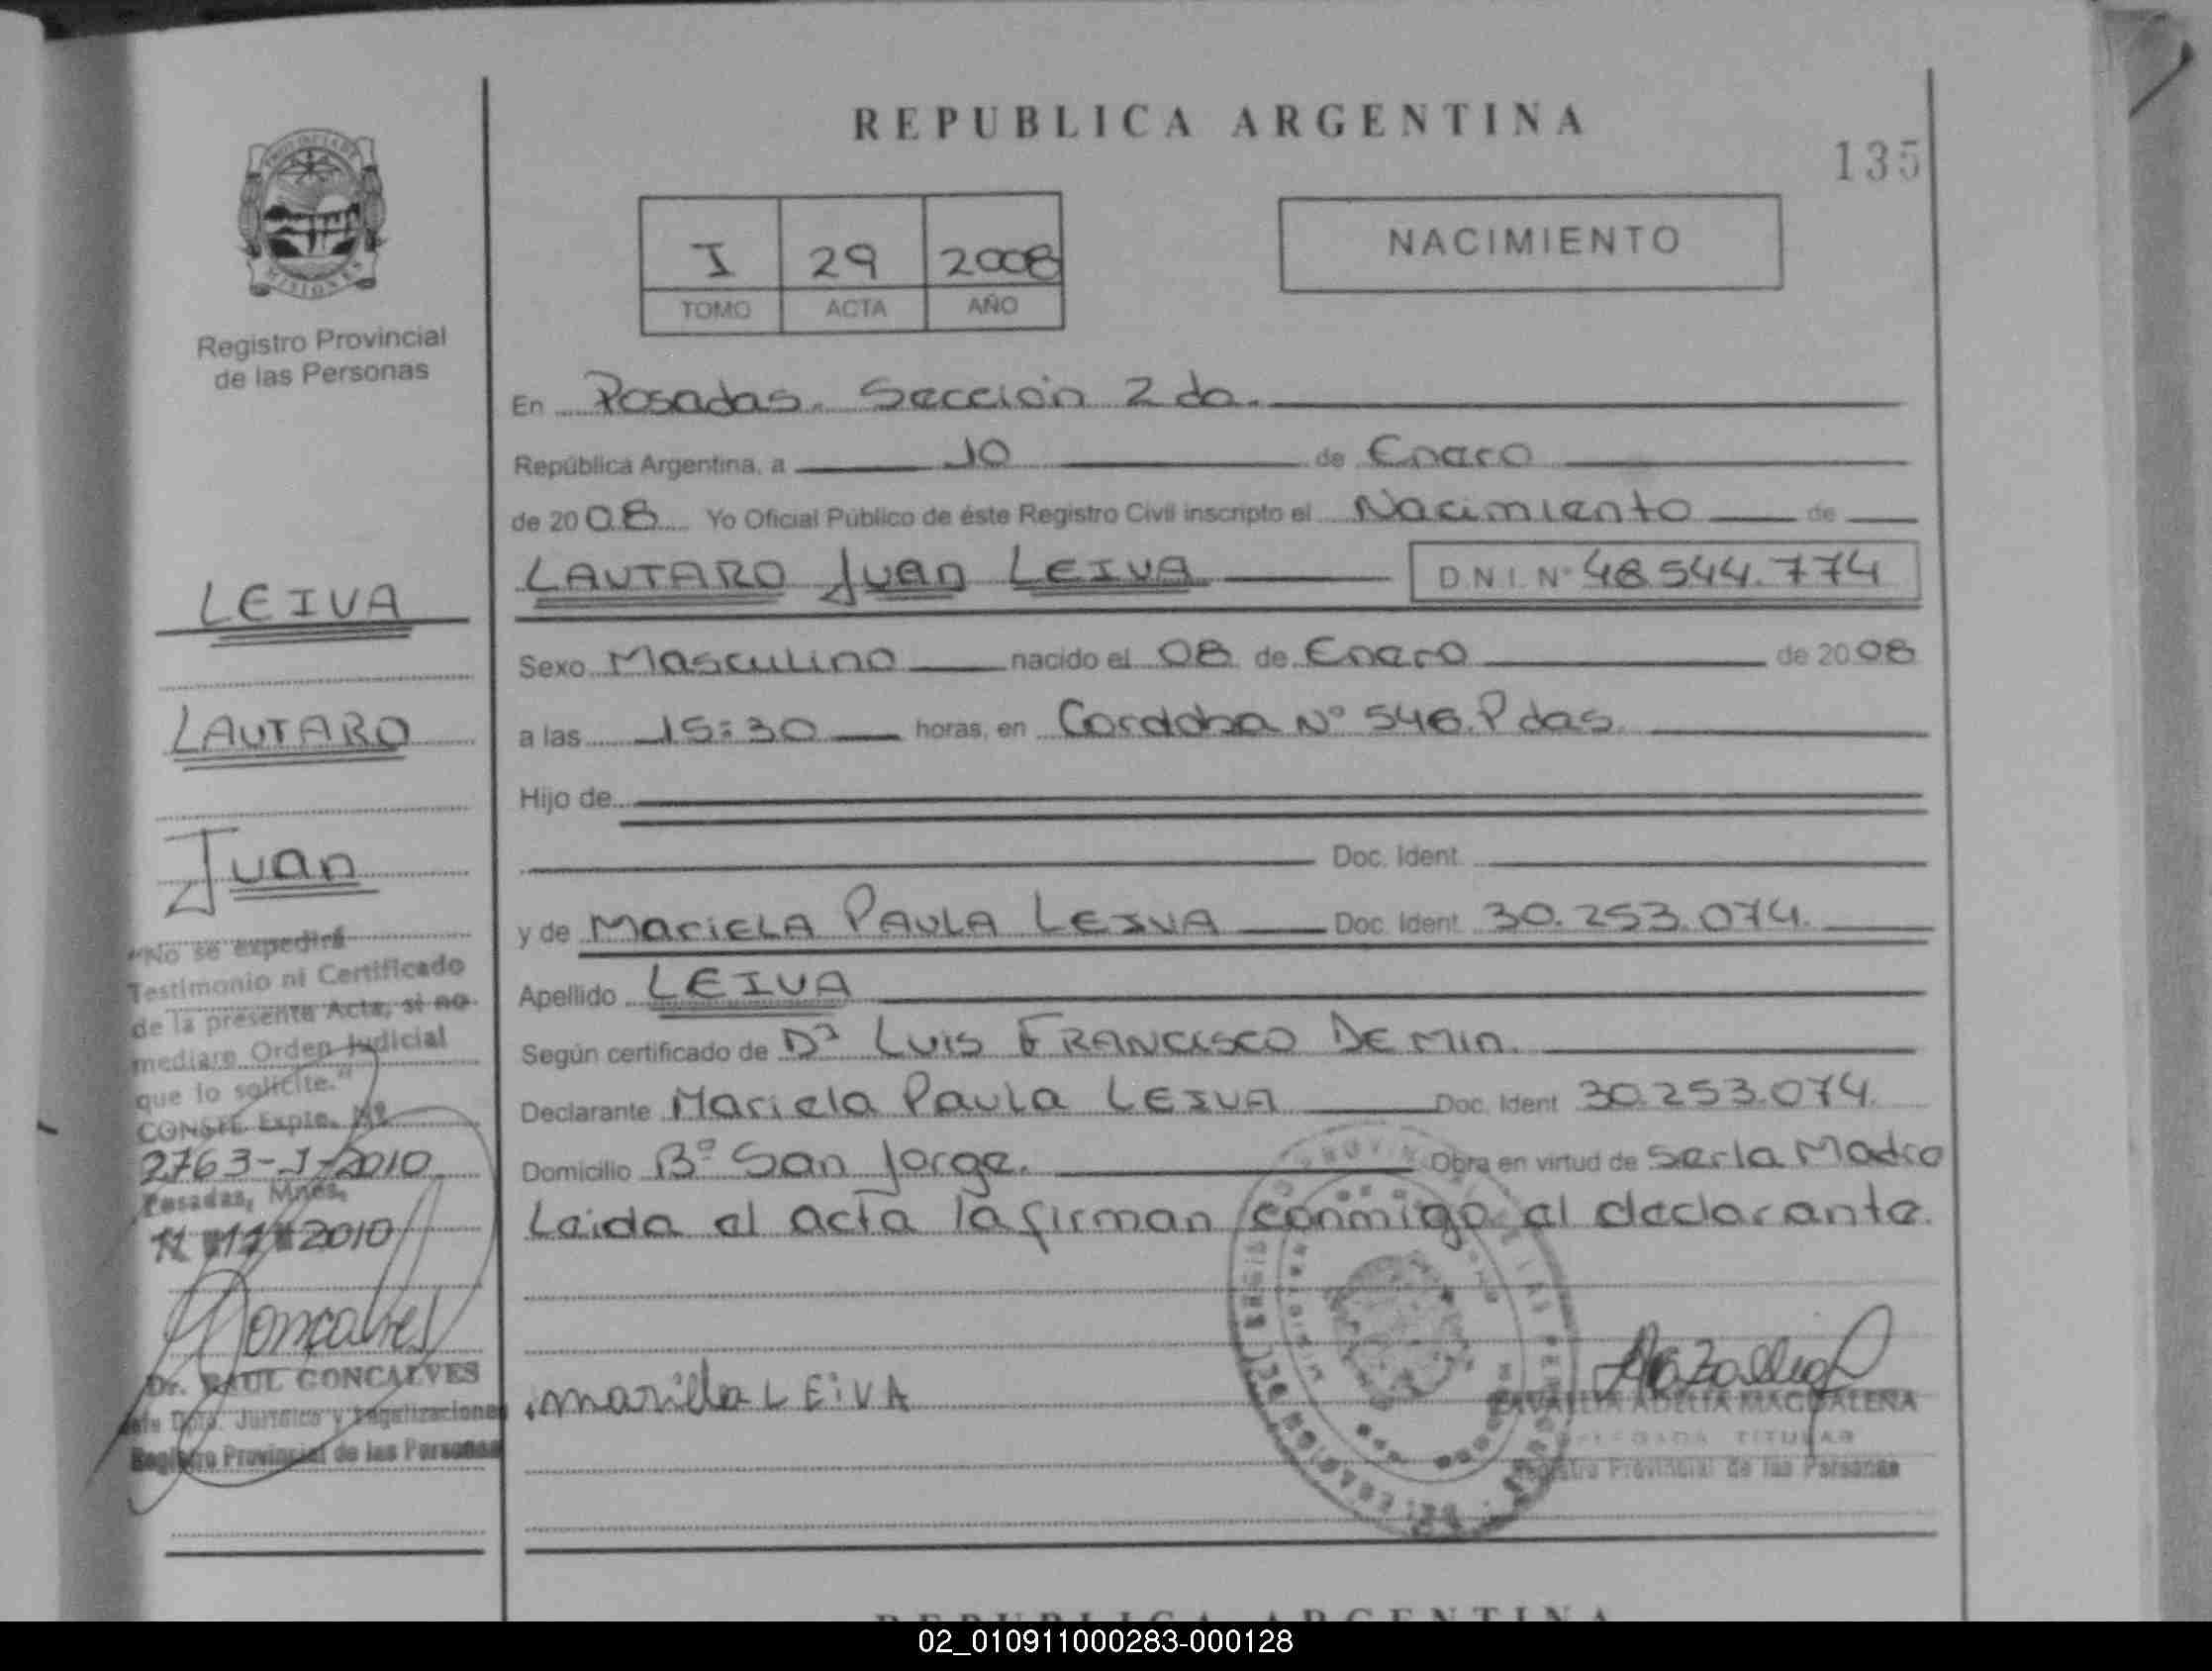 REPUBLICA ARGENTINA
135
I 29 2008
TOMO ACTA AÑO
NACIMIENTO
MISIONES
Registro Provincial
de las Personas
LEIVA
LAUTARO
Juan
"No se expedirá
Testimonio ni Certificado
de la presente Acta, si no
mediare Orden Judicial
que lo solicite."
CONSTE Expte. Nº
2763-J-2010
Posadas, Mnes,
11 11 2010
Goncalves
Dr. RAUL GONCALVES
Jefe Dpto. Jurídico y Legalizaciones
Registro Provincial de las Personas
En Posadas. Sección 2da.
República Argentina, a 10 de Enero
de 2008 Yo Oficial Público de éste Registro Civil inscripto el Nacimiento de
LAUTARO Juan LEIVA D.N.I. Nº 48.544.774
Sexo Masculino nacido el 08 de Enero de 2008
a las 15:30 horas, en Cordoba Nº 546. Pdas.
Hijo de
Doc. Ident.
y de MARIELA PAULA LEIVA Doc. Ident. 30.253.074.
Apellido LEIVA
Según certificado de Dr LUIS FRANCISCO DE MIN.
Declarante Mariela Paula LEIVA Doc. Ident 30.253.074.
Domicilio Bº San Jorge. Obra en virtud de Ser la Madre
Leida el acta la firman conmigo el declarante.
mariela LEiVA
ZAVALLIA ADELIA MAGDALENA
DELEGADA TITULAR
Registro Provincial de las Personas
REPUBLICA ARGENTINA
02_010911000283-000128